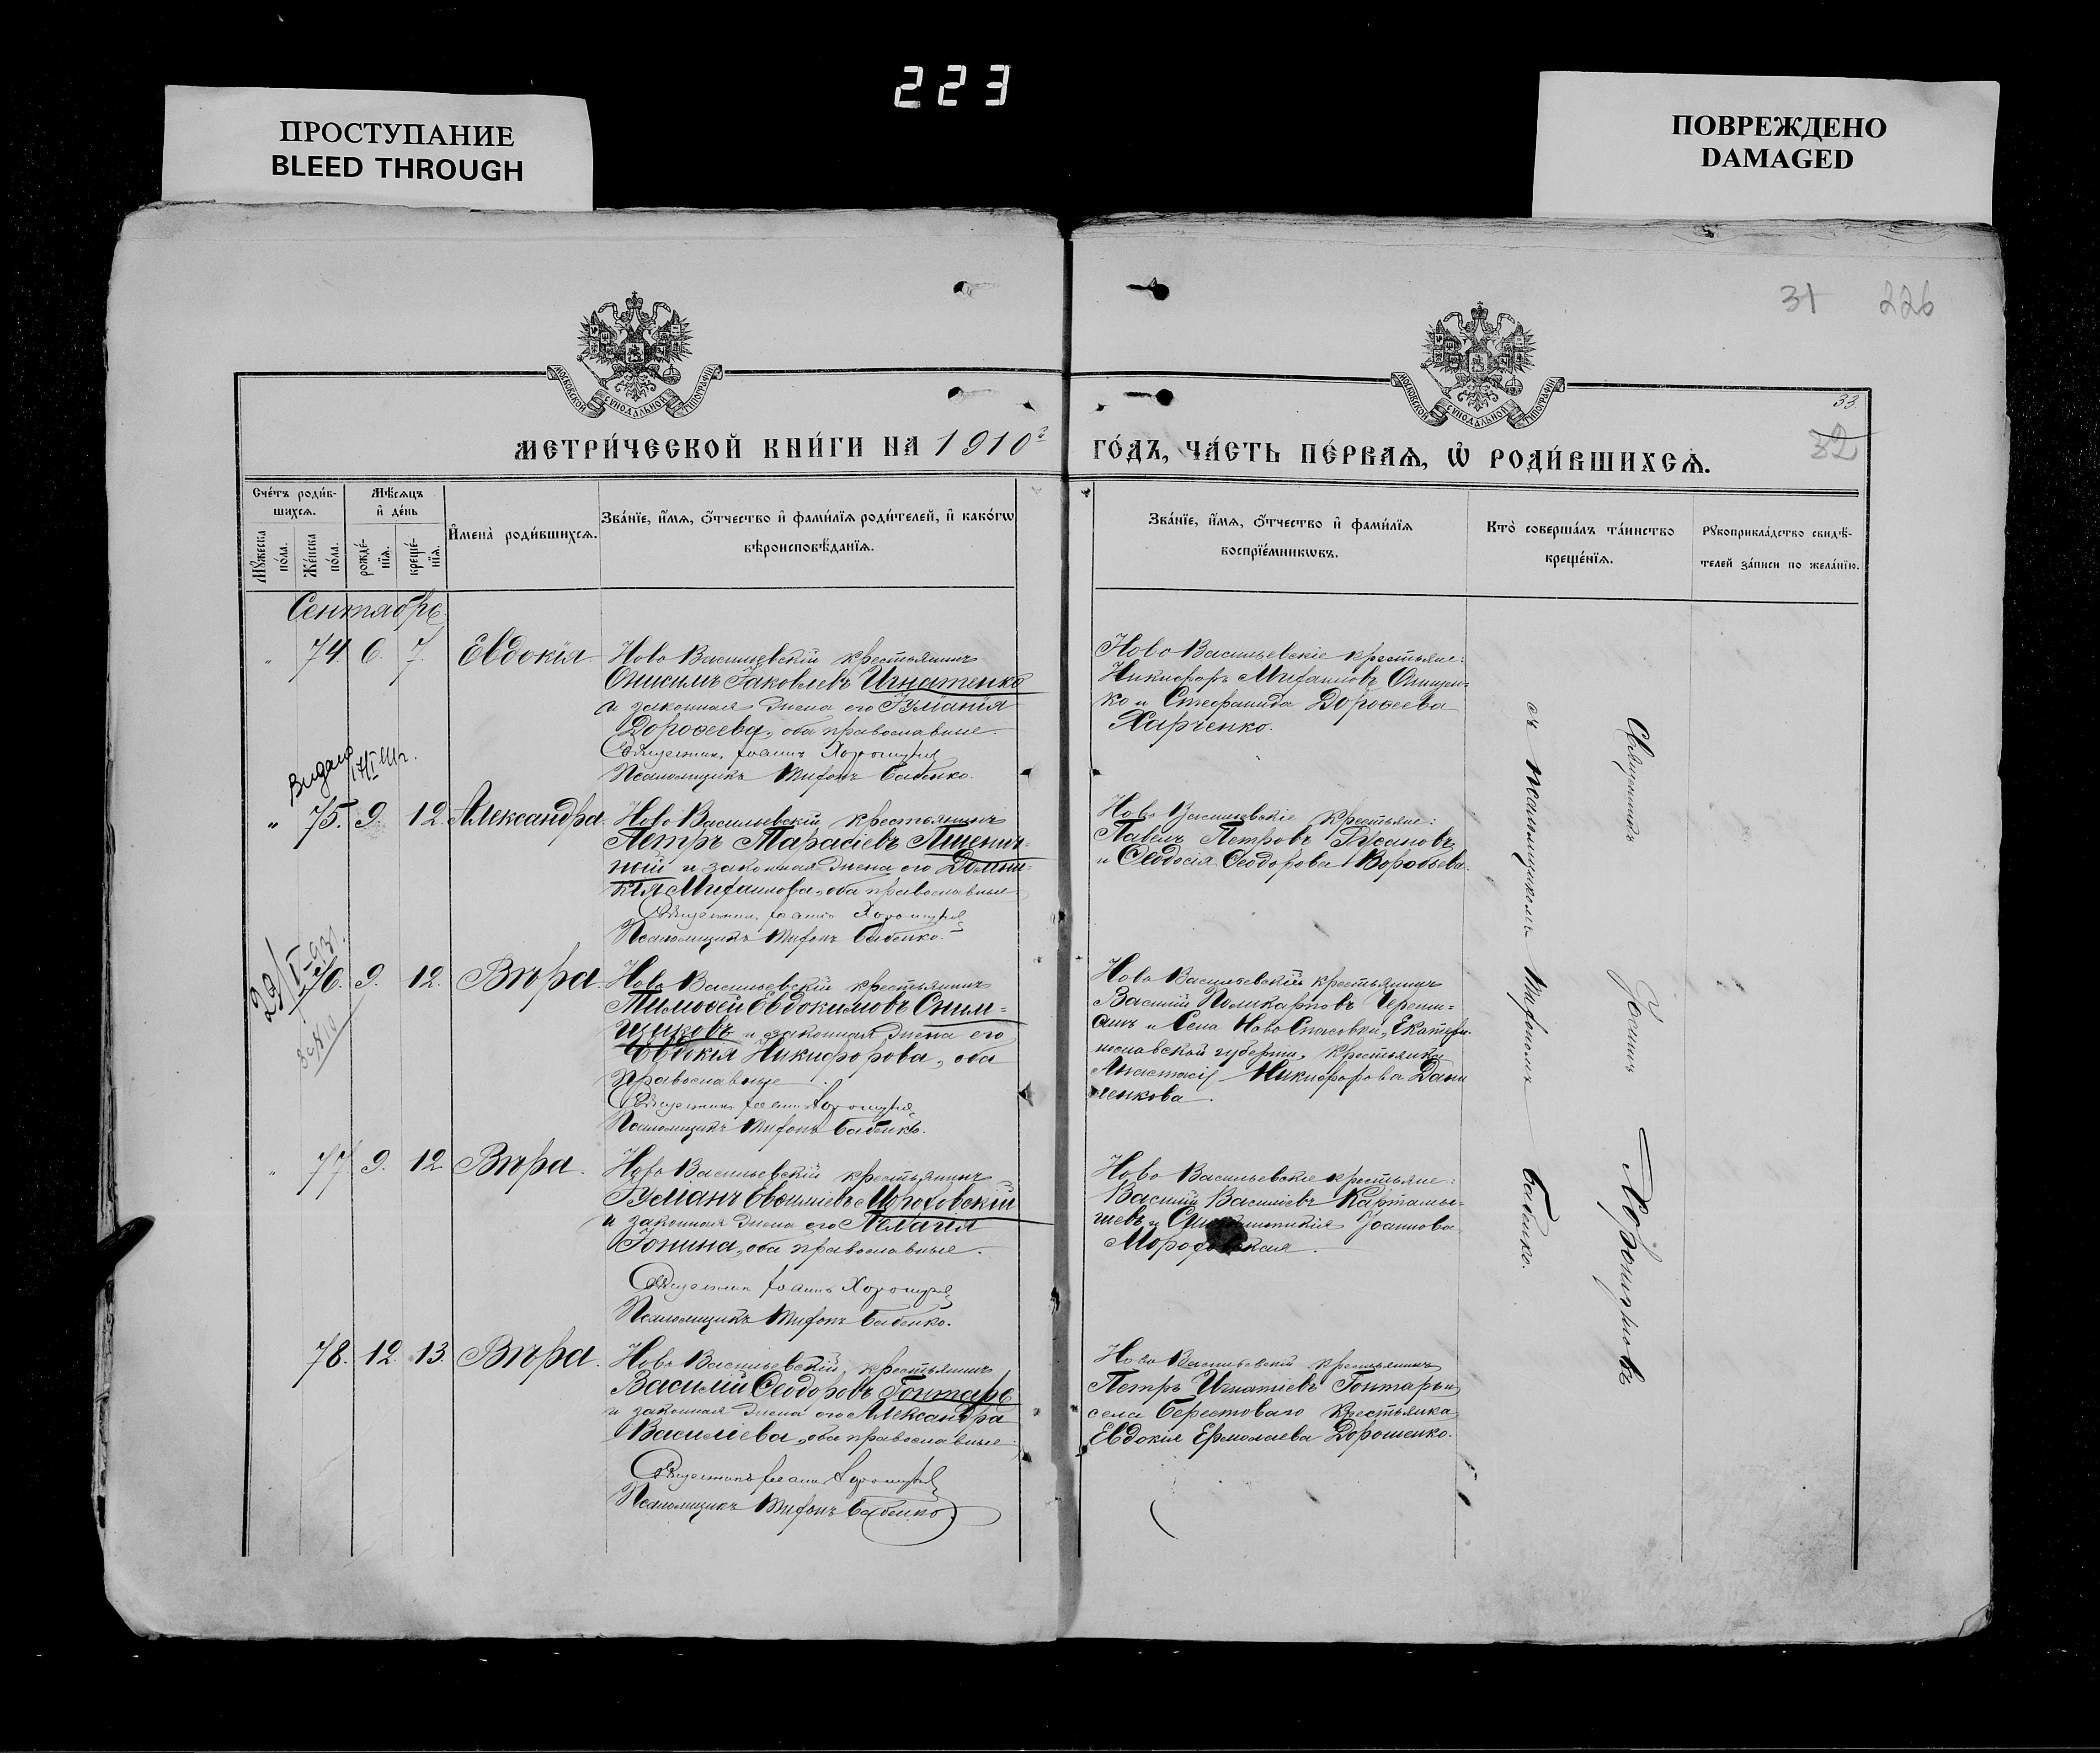 223
ПРОСТУПАНИЕ
BLEED THROUGH
ПОВРЕЖДЕНО
DAMAGED
31 226
МОСКОВСКОЙ СУНОДАЛЬНОЙ ТИПОГРАФІИ
МОСКОВСКОЙ СУНОДАЛЬНОЙ ТИПОГРАФІИ
33
32
МЕТРИ́ЧЕСКОЙ КНИ́ГИ НА 1910
ГО́ДЪ, ЧА́СТЬ ПЕ́РВАѦ, Ѡ҆ РОДИ́ВШИХСѦ.
Сче́тъ роди́в-
шихсѧ.
Мꙋ́жеска
по́ла.
Же́нска
по́ла.
Мѣ́сѧцъ
и҆ де́нь
рожде́-
нїѧ.
креще́-
нїѧ.
И҆мена̀ роди́вшихсѧ.
Зва́нїе, и҆́мѧ, ѻ҆́тчество и҆ фами́лїѧ роди́телей, и҆ како́гѡ
вѣроисповѣ́данїѧ.
Зва́нїе, и҆́мѧ, ѻ҆́тчество и҆ фами́лїѧ
воспрїе́мникѡвъ.
Кто̀ соверша́лъ та́инство
креще́нїѧ.
Рꙋкоприкла́дство свидѣ́-
телей за́писи по жела́нїю.
Сентябрь
" 74. 6. 7. Евдокія.
Ново Васильевскій крестьянинъ
Онисимъ Іаковлевъ Игнатенко
и законная жена его Іуліанія
Дороѳеева, оба православные.
Священник Іоаннъ
Псаломщикъ Тифонъ Бабенко.
Ново Васильевскіе крестьяне:
Никифоръ Михаиловъ Онищен-
ко и Стефанида Дороѳеева
Харченко.
" 75. 9. 12. Александра.
Ново Васильевскій крестьянинъ
Петръ Тарасіевъ Пшенич-
ный и законная жена его Домни-
кія Михаилова, оба православные
Священник Іоаннъ
Псаломщикъ Тифонъ Бабенко.
Ново Васильевскіе крестьяне:
Павелъ Петровъ
и Ѳеодосія Ѳеодорова Воробьева.
76. 9. 12. Вѣра.
Ново Васильевскій крестьянинъ
Тимоѳей Евдокимовъ
и законная жена его
Евдокія Никифорова, оба
православные.
Священник Іоаннъ
Псаломщикъ Тифонъ Бабенко.
Ново Васильевскій крестьянинъ
Василій Поликарповъ
и села Ново Спасовки, Екатери-
нославской губерніи, крестьянка
Анастасія Никифорова Дани
ленкова.
" 77. 9. 12. Вѣра.
Ново Васильевскій крестьянинъ
Евѳиміевъ Мороховскій
и законная жена его Пелагія
Іонина, оба православные.
Священник Іоаннъ
Псаломщикъ Тифонъ Бабенко.
Ново Васильевскіе крестьяне:
Василій Василіевъ
и Іоаннова
78. 12. 13. Вѣра.
Ново Васильевскій крестьянинъ
Василій Ѳеодоровъ Гонтарь
и законная жена его Александра
Василіева, оба православные.
Священникъ Іоаннъ
Псаломщикъ Тифонъ Бабенко.
Ново Васильевскій крестьянинъ
Петръ Игнатіевъ Гонтарь и
села Берестоваго крестьянка
Евдокія Ермолаева Дорошенко.
Священникъ Іоаннъ
съ псаломщикомъ Тифономъ Бабенко.